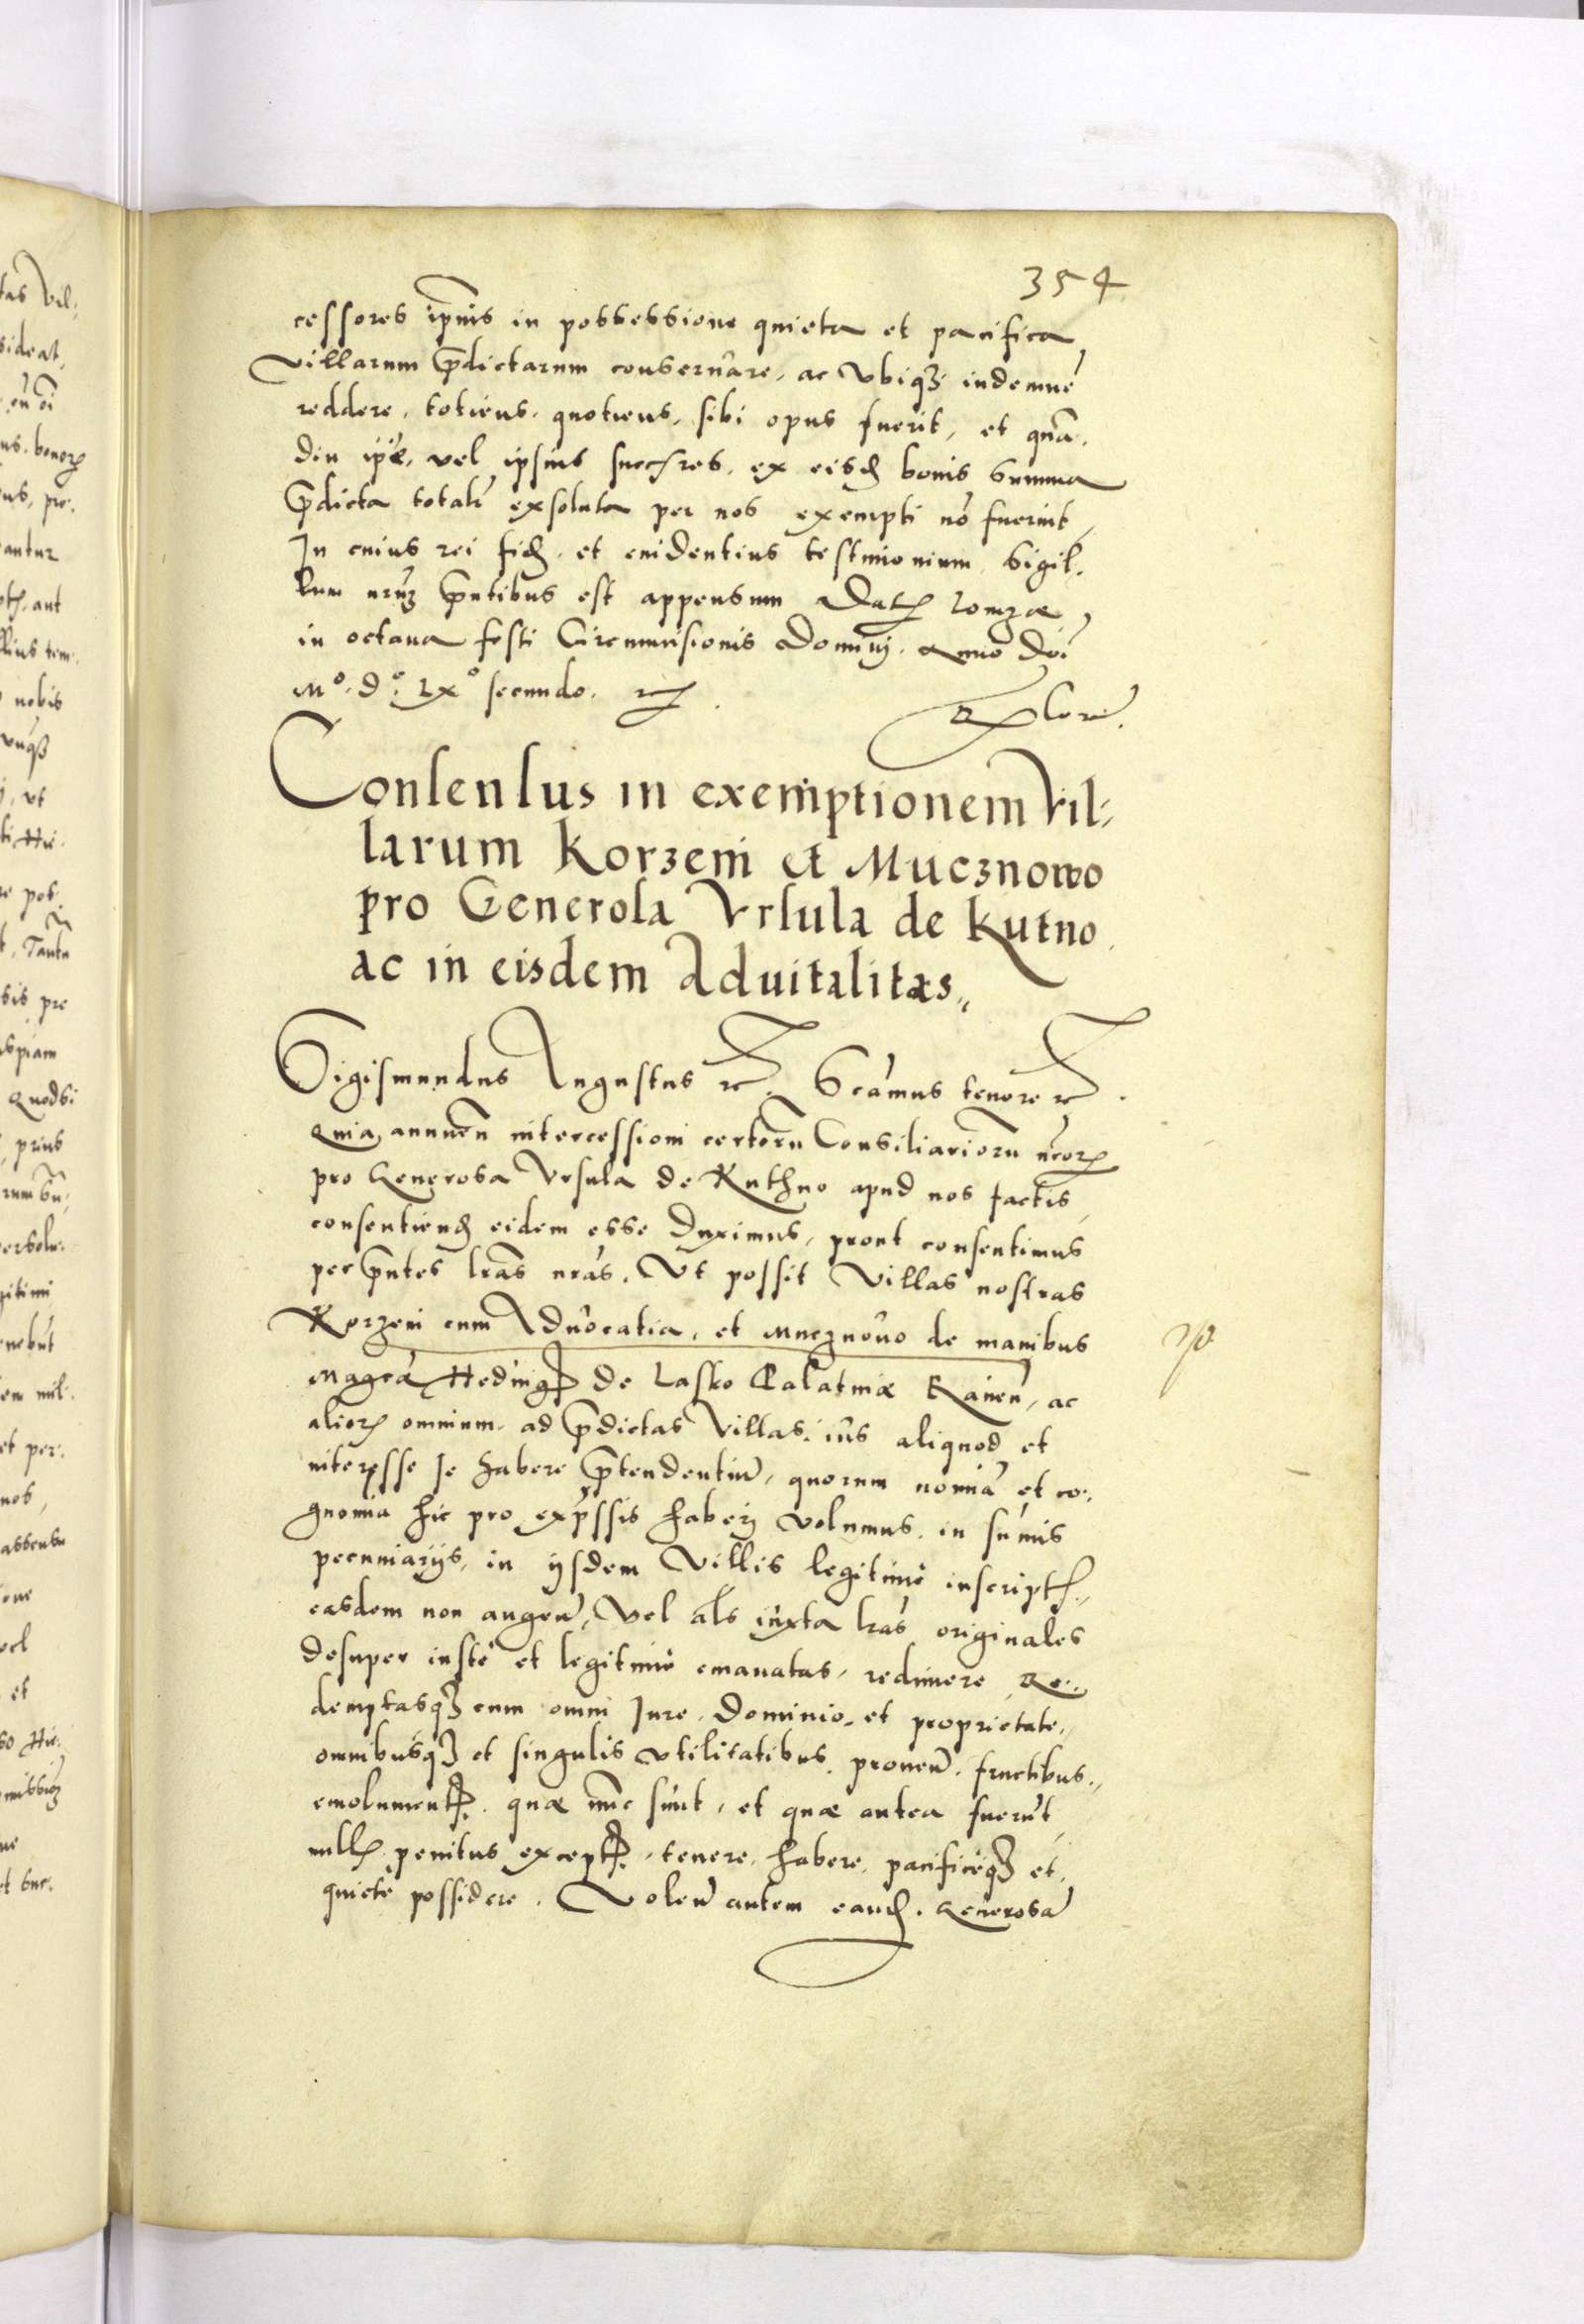 354
cessores ip̄ius in possessione quieta et pacifica
villarum p̄dictarum conservare, ac ubiq3 indemnē
reddere, totiens, quotiens, sibi opus fuerit, et quā-
diu ip̄e, vel ipsius succ̄res, ex eisd bonis summa
p̄dicta totalr̄ exsoluta per nos exempti nō fuerint,
In cuius rei fid. et evidentius testimonium, Sigil-
lum nrūm p̄ntibus est appensum Dat Lomzæ
in octava festi Circumcisionis Dominj. Anno Dōi
Mº. Dº. Lxº secundo. rc.
Consensus in exemptionem Vil-
larum Korzeni et Mucznowo
pro Generosa Ursula de Kutno
ac in eisdem Advitalitas
Sigismundus Augustus rc. Scāmus tenore rc.
Quia annuen̄ intercessioni certorū Consiliariorū nr̄or
pro Generosa Ursula de Kuthno apud nos factis,
consentiend eidem esse duximus, prout consentimus
per p̄ntes lrās nrās. Ut possit Villas nostras
Korzeni cum Advocatia, et Mucznovo de manibus
Magcā Hedvig de Lasko Palatinæ Raven̄, ac
alior omnium ad p̄dictas Villas ius aliquod et
interesse se habere p̄tendentiū, quorum nomīa et co-
gnomia hic pro exp̄ssis haberj volumus, in sūmis
pecuniarijs, in ijsdem Villis legitimè inscript,
easdem non augen̄, Vel als̄ iuxta lrās originales
desuper iustè et legitimè emanatas, redimere, Re-
demptasq3 cum omni Jure, Dominio, et proprietate,
omnibusq3 et singulis utilitatibus, proven̄, fructibus,
emolument. quæ nūc sunt, et quæ antea fuerūt,
null penitus except., tenere, habere, pacificèq3 et
quietè possidere. Volen̄ autem eand. Generosā